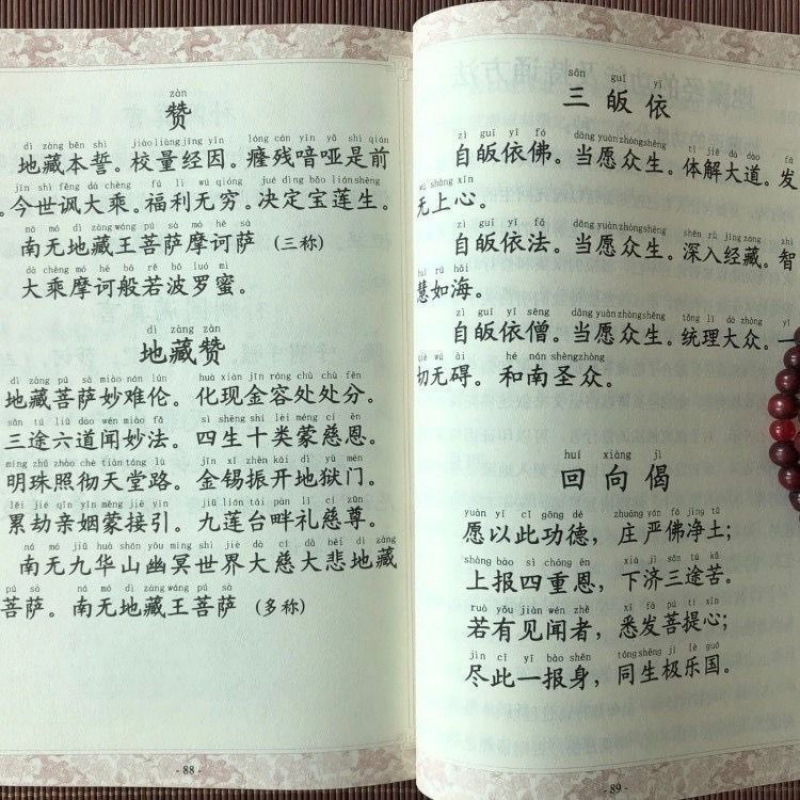 zàn
赞
dì zàng běn shì jiào liàng jīng yīn lóng cán yīn yǎ shì qián
地藏本誓。校量经因。癃残喑哑是前
jīn shì fěng dà chéng fú lì wú qióng jué dìng bǎo lián shēng
。今世讽大乘。福利无穷。决定宝莲生。
ná mó dì zàng wáng pú sà mó hē sà
南无地藏王菩萨摩诃萨 (三称)
dà chéng mó hē bō rě bō luó mì
大乘摩诃般若波罗蜜。
dì zàng zàn
地藏赞
dì zàng pú sà miào nán lún huà xiàn jīn róng chù chù fēn
地藏菩萨妙难伦。化现金容处处分。
sān tú liù dào wén miào fǎ sì shēng shí lèi méng cí ēn
三途六道闻妙法。四生十类蒙慈恩。
míng zhū zhào chè tiān táng lù jīn xī zhèn kāi dì yù mén
明珠照彻天堂路。金锡振开地狱门。
lěi jié qīn yīn méng jiē yǐn jiǔ lián tái pàn lǐ cí zūn
累劫亲姻蒙接引。九莲台畔礼慈尊。
ná mó jiǔ huá shān yōu míng shì jiè dà cí dà bēi dì zàng
南无九华山幽冥世界大慈大悲地藏
pú sà ná mó dì zàng wáng pú sà
菩萨。南无地藏王菩萨 (多称)
- 88 -
sān guī yī
三皈依
zì guī yī fó dāng yuàn zhòng shēng tǐ jiě dà dào fā
自皈依佛。当愿众生。体解大道。发
wú shàng xīn
无上心。
zì guī yī fǎ dāng yuàn zhòng shēng shēn rù jīng zàng zhì
自皈依法。当愿众生。深入经藏。智
huì rú hǎi
慧如海。
zì guī yī sēng dāng yuàn zhòng shēng tǒng lǐ dà zhòng yī
自皈依僧。当愿众生。统理大众。一
qiè wú ài hé nán shèng zhòng
切无碍。和南圣众。
huí xiàng jì
回向偈
yuàn yǐ cǐ gōng dé zhuāng yán fó jìng tǔ
愿以此功德，庄严佛净土；
shàng bào sì chóng ēn xià jì sān tú kǔ
上报四重恩，下济三途苦。
ruò yǒu jiàn wén zhě xī fā pú tí xīn
若有见闻者，悉发菩提心；
jìn cǐ yī bào shēn tóng shēng jí lè guó
尽此一报身，同生极乐国。
- 89 -